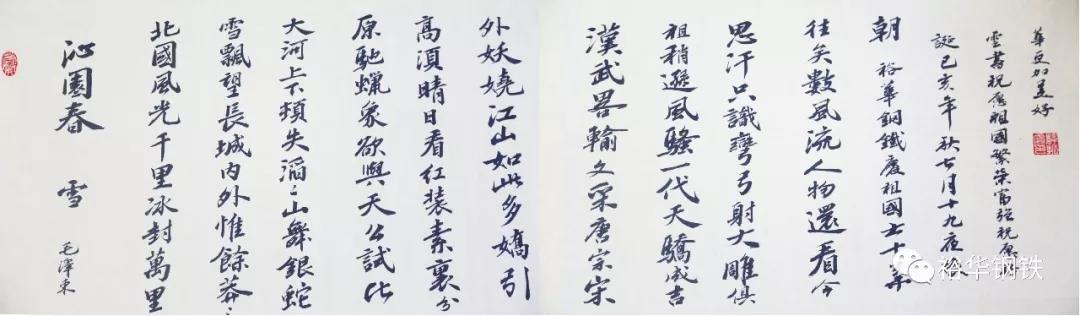 沁園春 雪
毛澤東
北國風光千里冰封萬里
雪飄望長城內外惟餘莽〻
大河上下頓失滔〻山舞銀蛇
原馳蠟象欲與天公試比
高須晴日看红装素裹分
外妖嬈江山如此多嬌引
漢武畧輸文采唐宗宋
祖稍遜風騷一代天驕成吉
思汗只識彎弓射大雕俱
往矣數風流人物還看今
朝 裕華鋼鐵慶祖國七十華
誕己亥年秋七月十九夜
雲書祝愿祖國繁榮富强祝愿
華更加美好
裕华钢铁